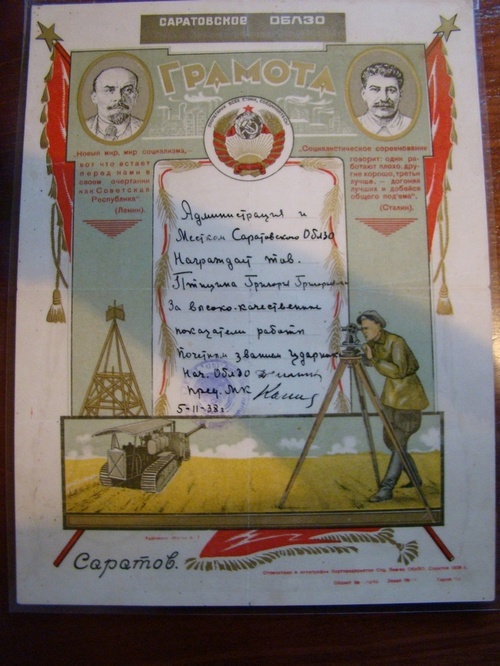 САРАТОВСКОЕ ОБЛЗО
ГРАМОТА
„Новый мир, мир социализма, –
вот что встает
перед нами в
своем очертании
как Советская
Республика“
(Ленин).
„Социалистическое соревнование
говорит: одни ра-
ботают плохо, дру-
гие хорошо, третьи
лучше, — догоняй
лучших и добейся
общего под'ема“.
(Сталин).
Администрация и
Местком Саратовского ОблЗО
Награждает тов.
Птицина Григория
За высоко-качественные
показатели работы
Почетным званием ударника
Нач. ОблЗО
Пред. МК
5-II-38 г.
Саратов.